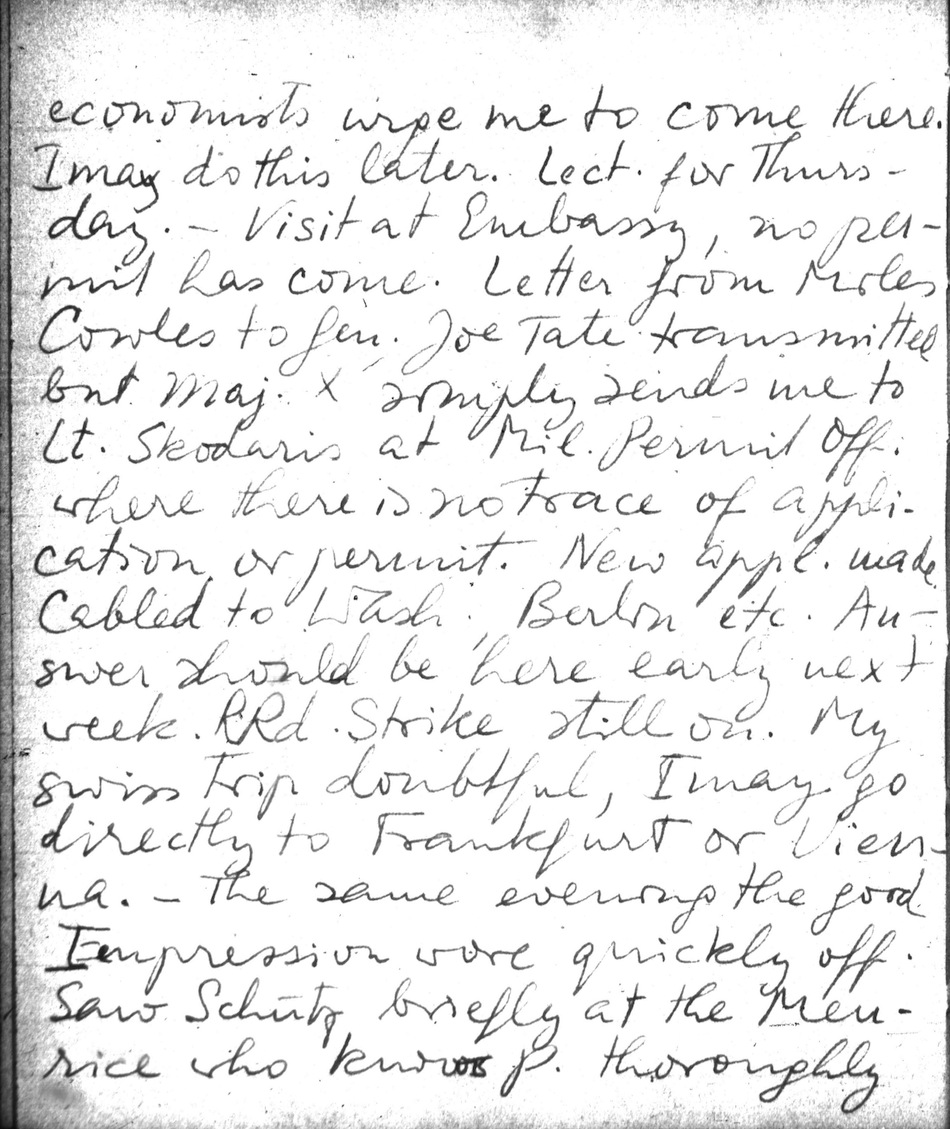 economists urge me to come there.
I may do this later. Lect. for Thurs-
day. – Visit at Embassy, no per-
mit has come. Letter from Miles
Cowles to Gen. Joe Tate transmitted
but Maj. X simply sends me to
Lt. Skodaris at Mil. Permit Off.
where there is no trace of appli-
cation or permit. New appl. made.
Cabled to Wash., Berlin etc. An-
swer should be here early next
week. RRd. Strike still on. My
swiss trip doubtful, I may go
directly to Frankfurt or Vien-
na. – The same evening the good
Impression wore quickly off.
Saw Schütz briefly at the Meu-
rice who knows P. thoroughly